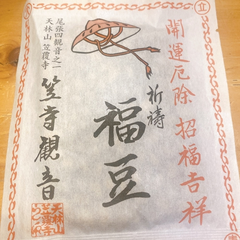 開運厄除 招福吉祥
祈祷
福豆
尾張四観音之一
天林山・笠覆寺
笠寺觀音